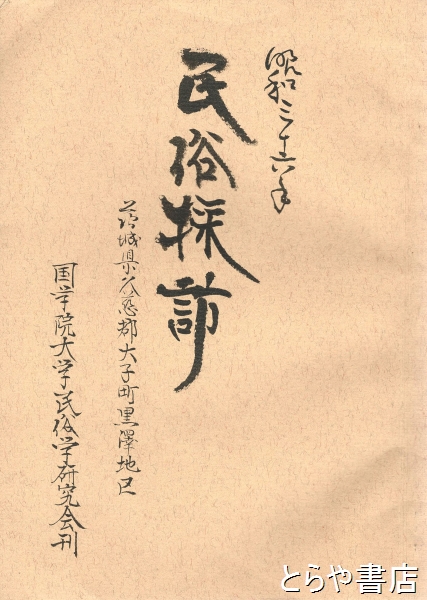 昭和三十六年
民俗探訪
茨城県久慈郡大子町黒澤地区
国学院大学民俗学研究会刊
とらや書店